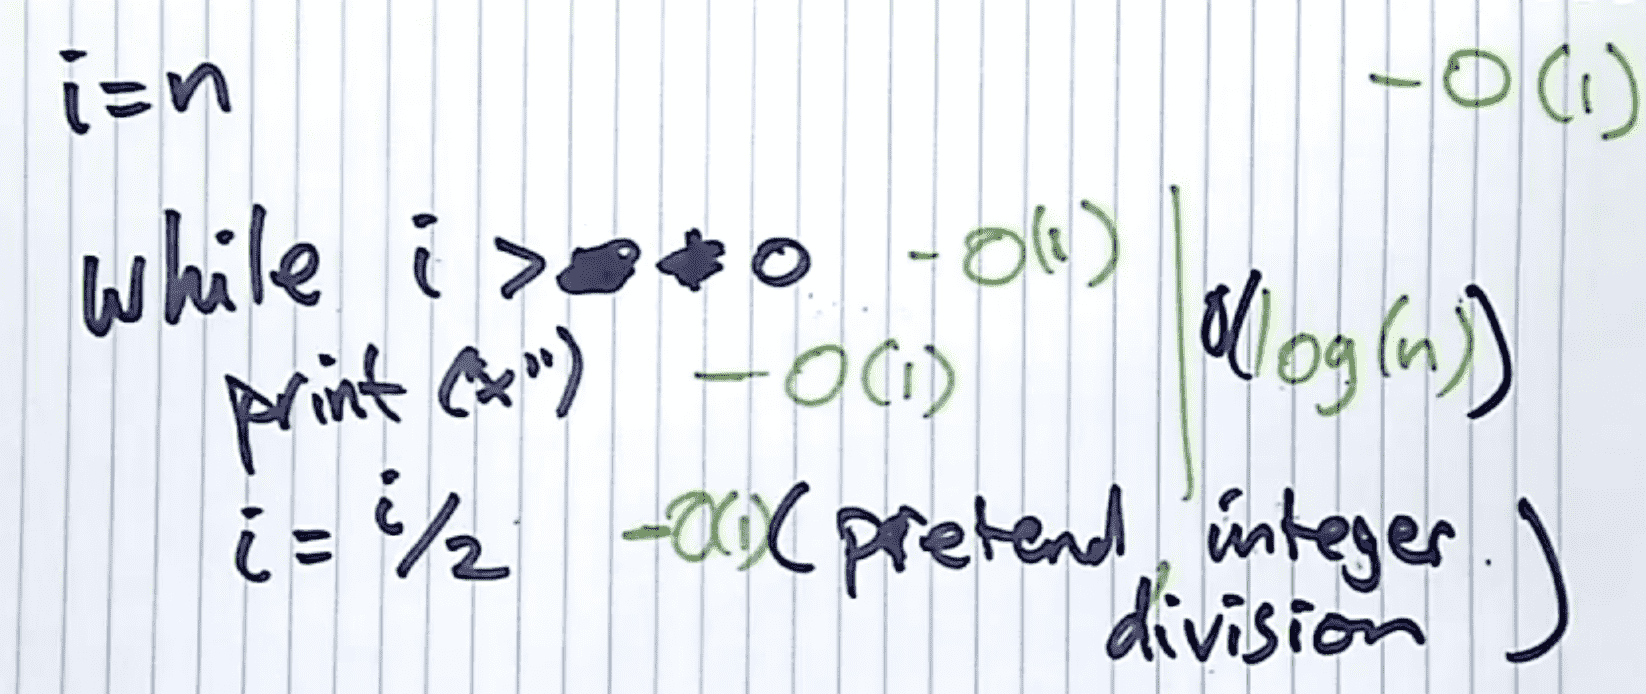 i=n -O(1)
while i > 0 -O(1)
O(log(n))
print ("x") -O(1)
i = i/2 -O(1) (pretend integer
division)